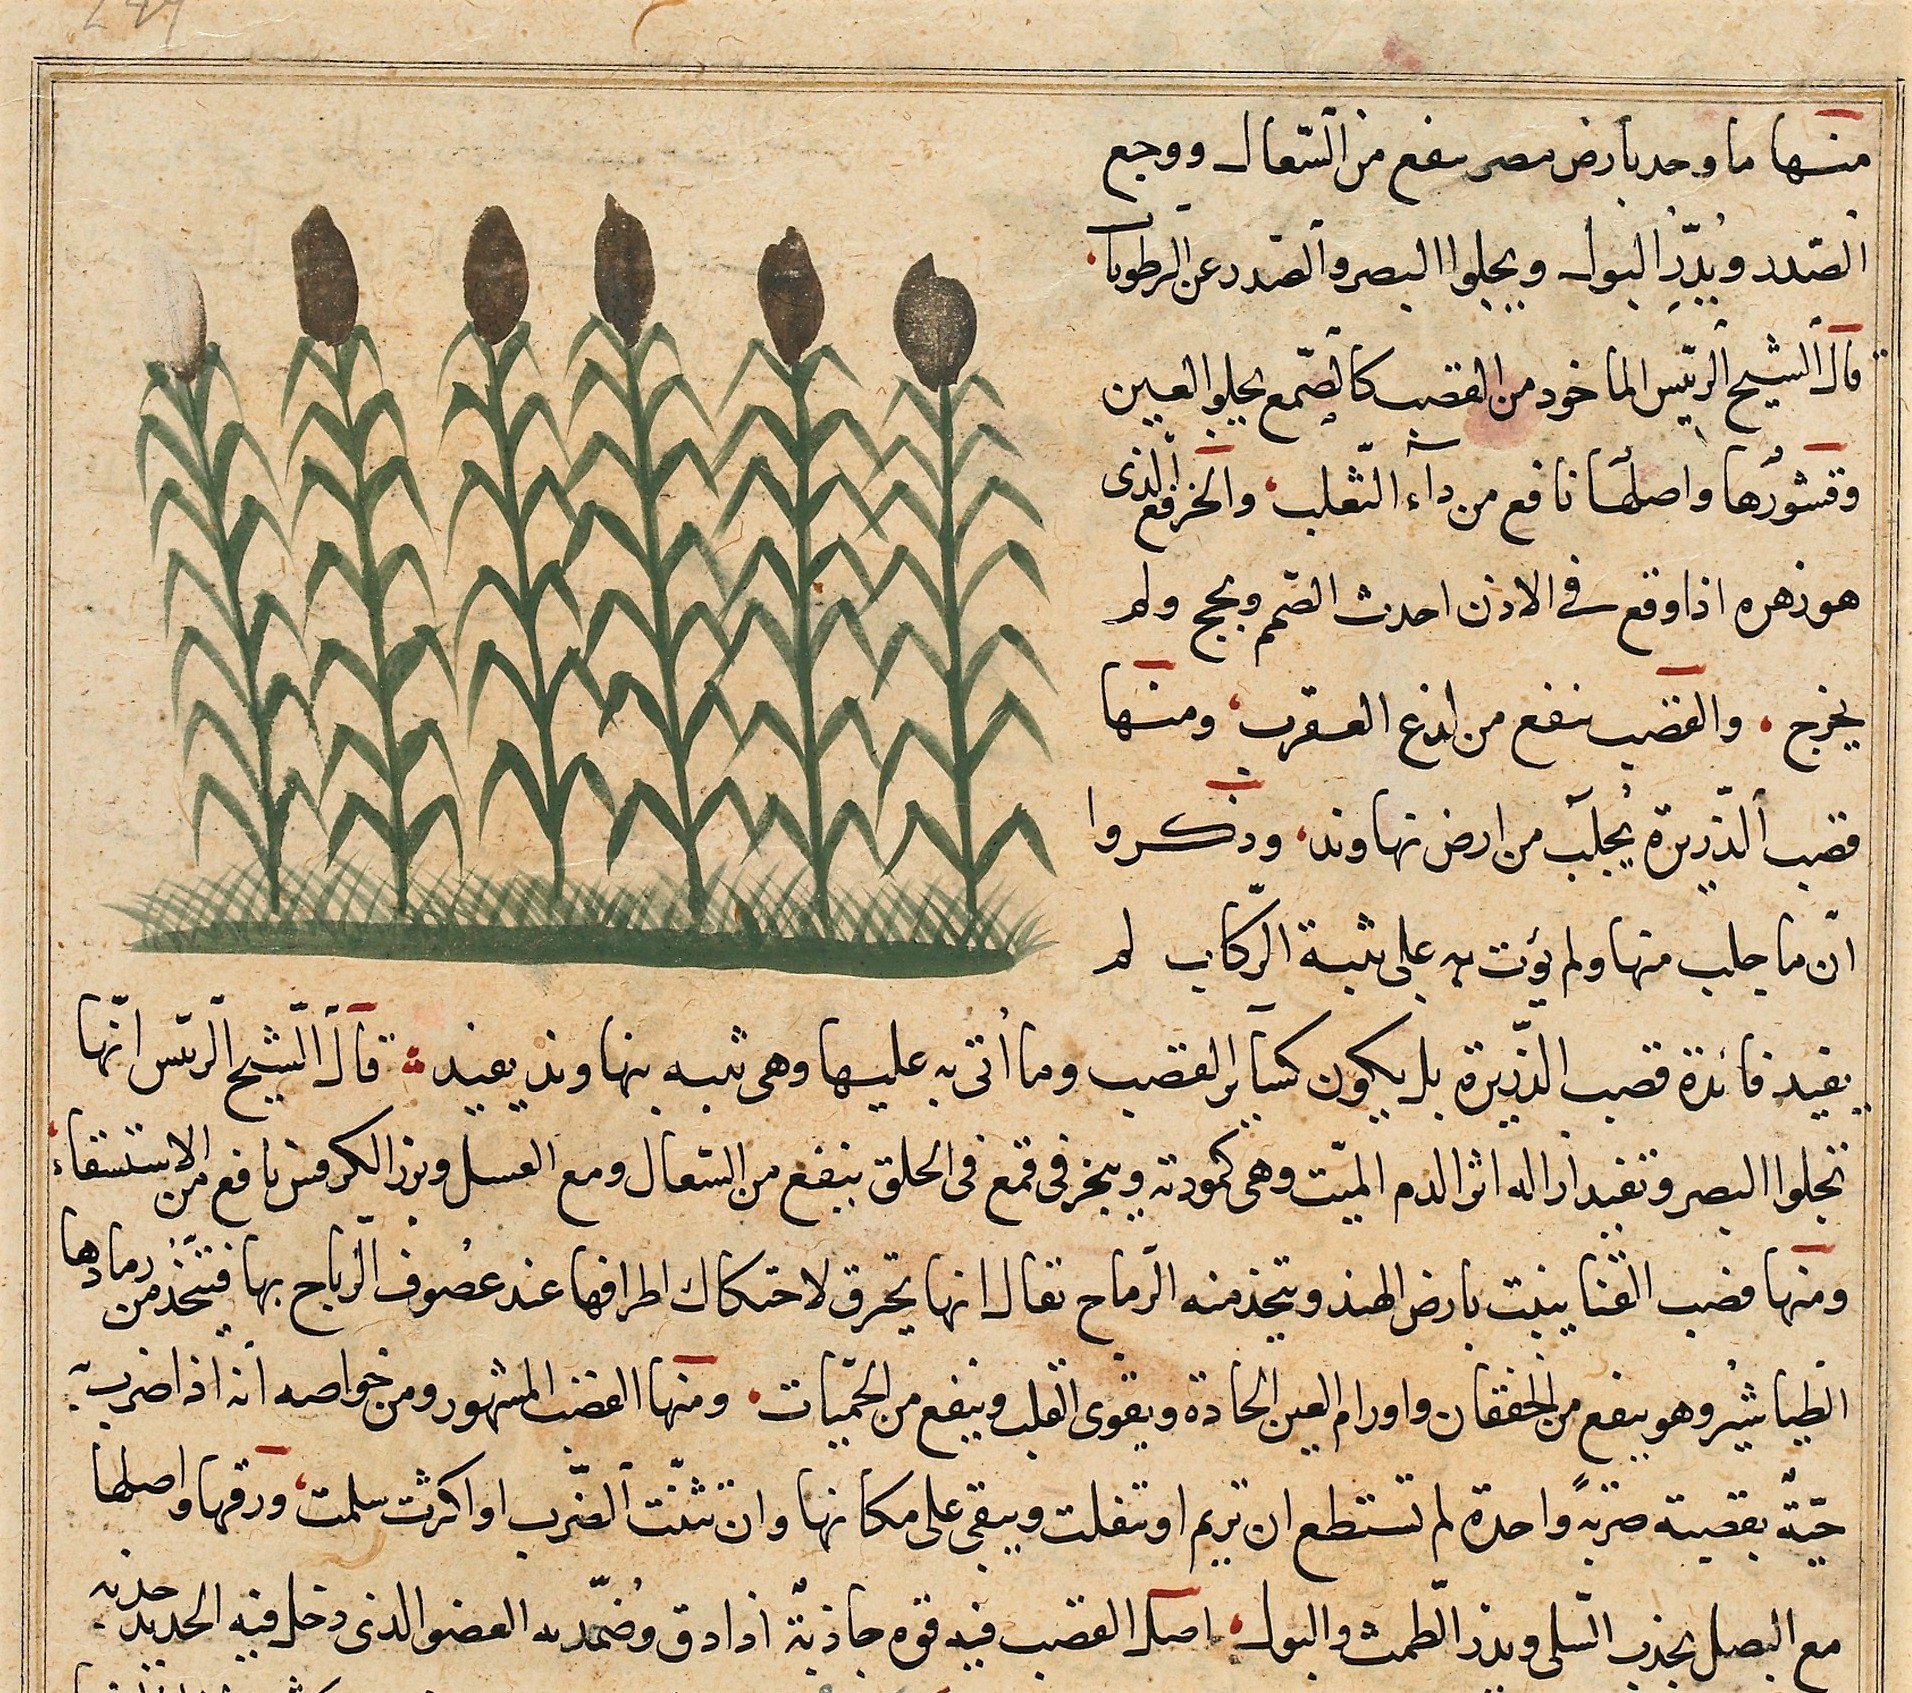 منها ما وجد بأرض مصر ينفع من السّعال ووجع
الصّدر ويُدِرّ البول ويجلوا البصر والصّدر عن الرطوبات
قال الشيخ الرئيس الماخود من القصب كالصّمع يجلوا العين
وقشورُها واصلُها نافع من دآء الثّعلب والخرفع الذى
هو زهره اذا وقع فى الاذن احدث الصّمم وبحج ولم
يخرج والقصب ينفع من لدغ العقرب ومنها
قصب الذّريرة يُجلَب من ارض نهاوند وذكروا
انّ ما جلب منها ولم يؤت به على ثنية الرّكاب لم
يفيد فائدة قصب الذّريرة بل يكون كسآير القصب وما اُتى به عليها وهى ثنيه بنهاوند يفيد قال الشيخ الرئيس انّها
تجلوا البصر وتفيد ازاله اثر الدم الميّت وهى كمودته ويبخر فى قمع فى الحلق ينفع من السّعال ومع العسل وبزر الكرفس نافع من الاستسقاء
ومنها قصب القنا ينبت بارض الهند ويتخذ منه الرّماح تقال انها تحرق لاحتكاك اطرافها عند عصُوف الرّياح بها فتتّخذ من رمادها
الطباشير وهو ينفع من الخفقان واورام العين الحادة ويقوى القلب وينفع من الحمّيات ومنها القصب المشهور ومن خواصه انه اذا ضرب به
حيّةٌ بقصبة ضربةً واحدة لم تستطع ان تريم او تنفلت ويبقى على مكانها وان تثنّت الضّرب او اكرثت سلمت ورقها واصلها
مع البصل يجذب السّلى ويدر الطّمث والبول اصل القصب فيه قوه جاذبة اذا دق وضُمّد به العضو الذى دخل فيه الحديد جذبه